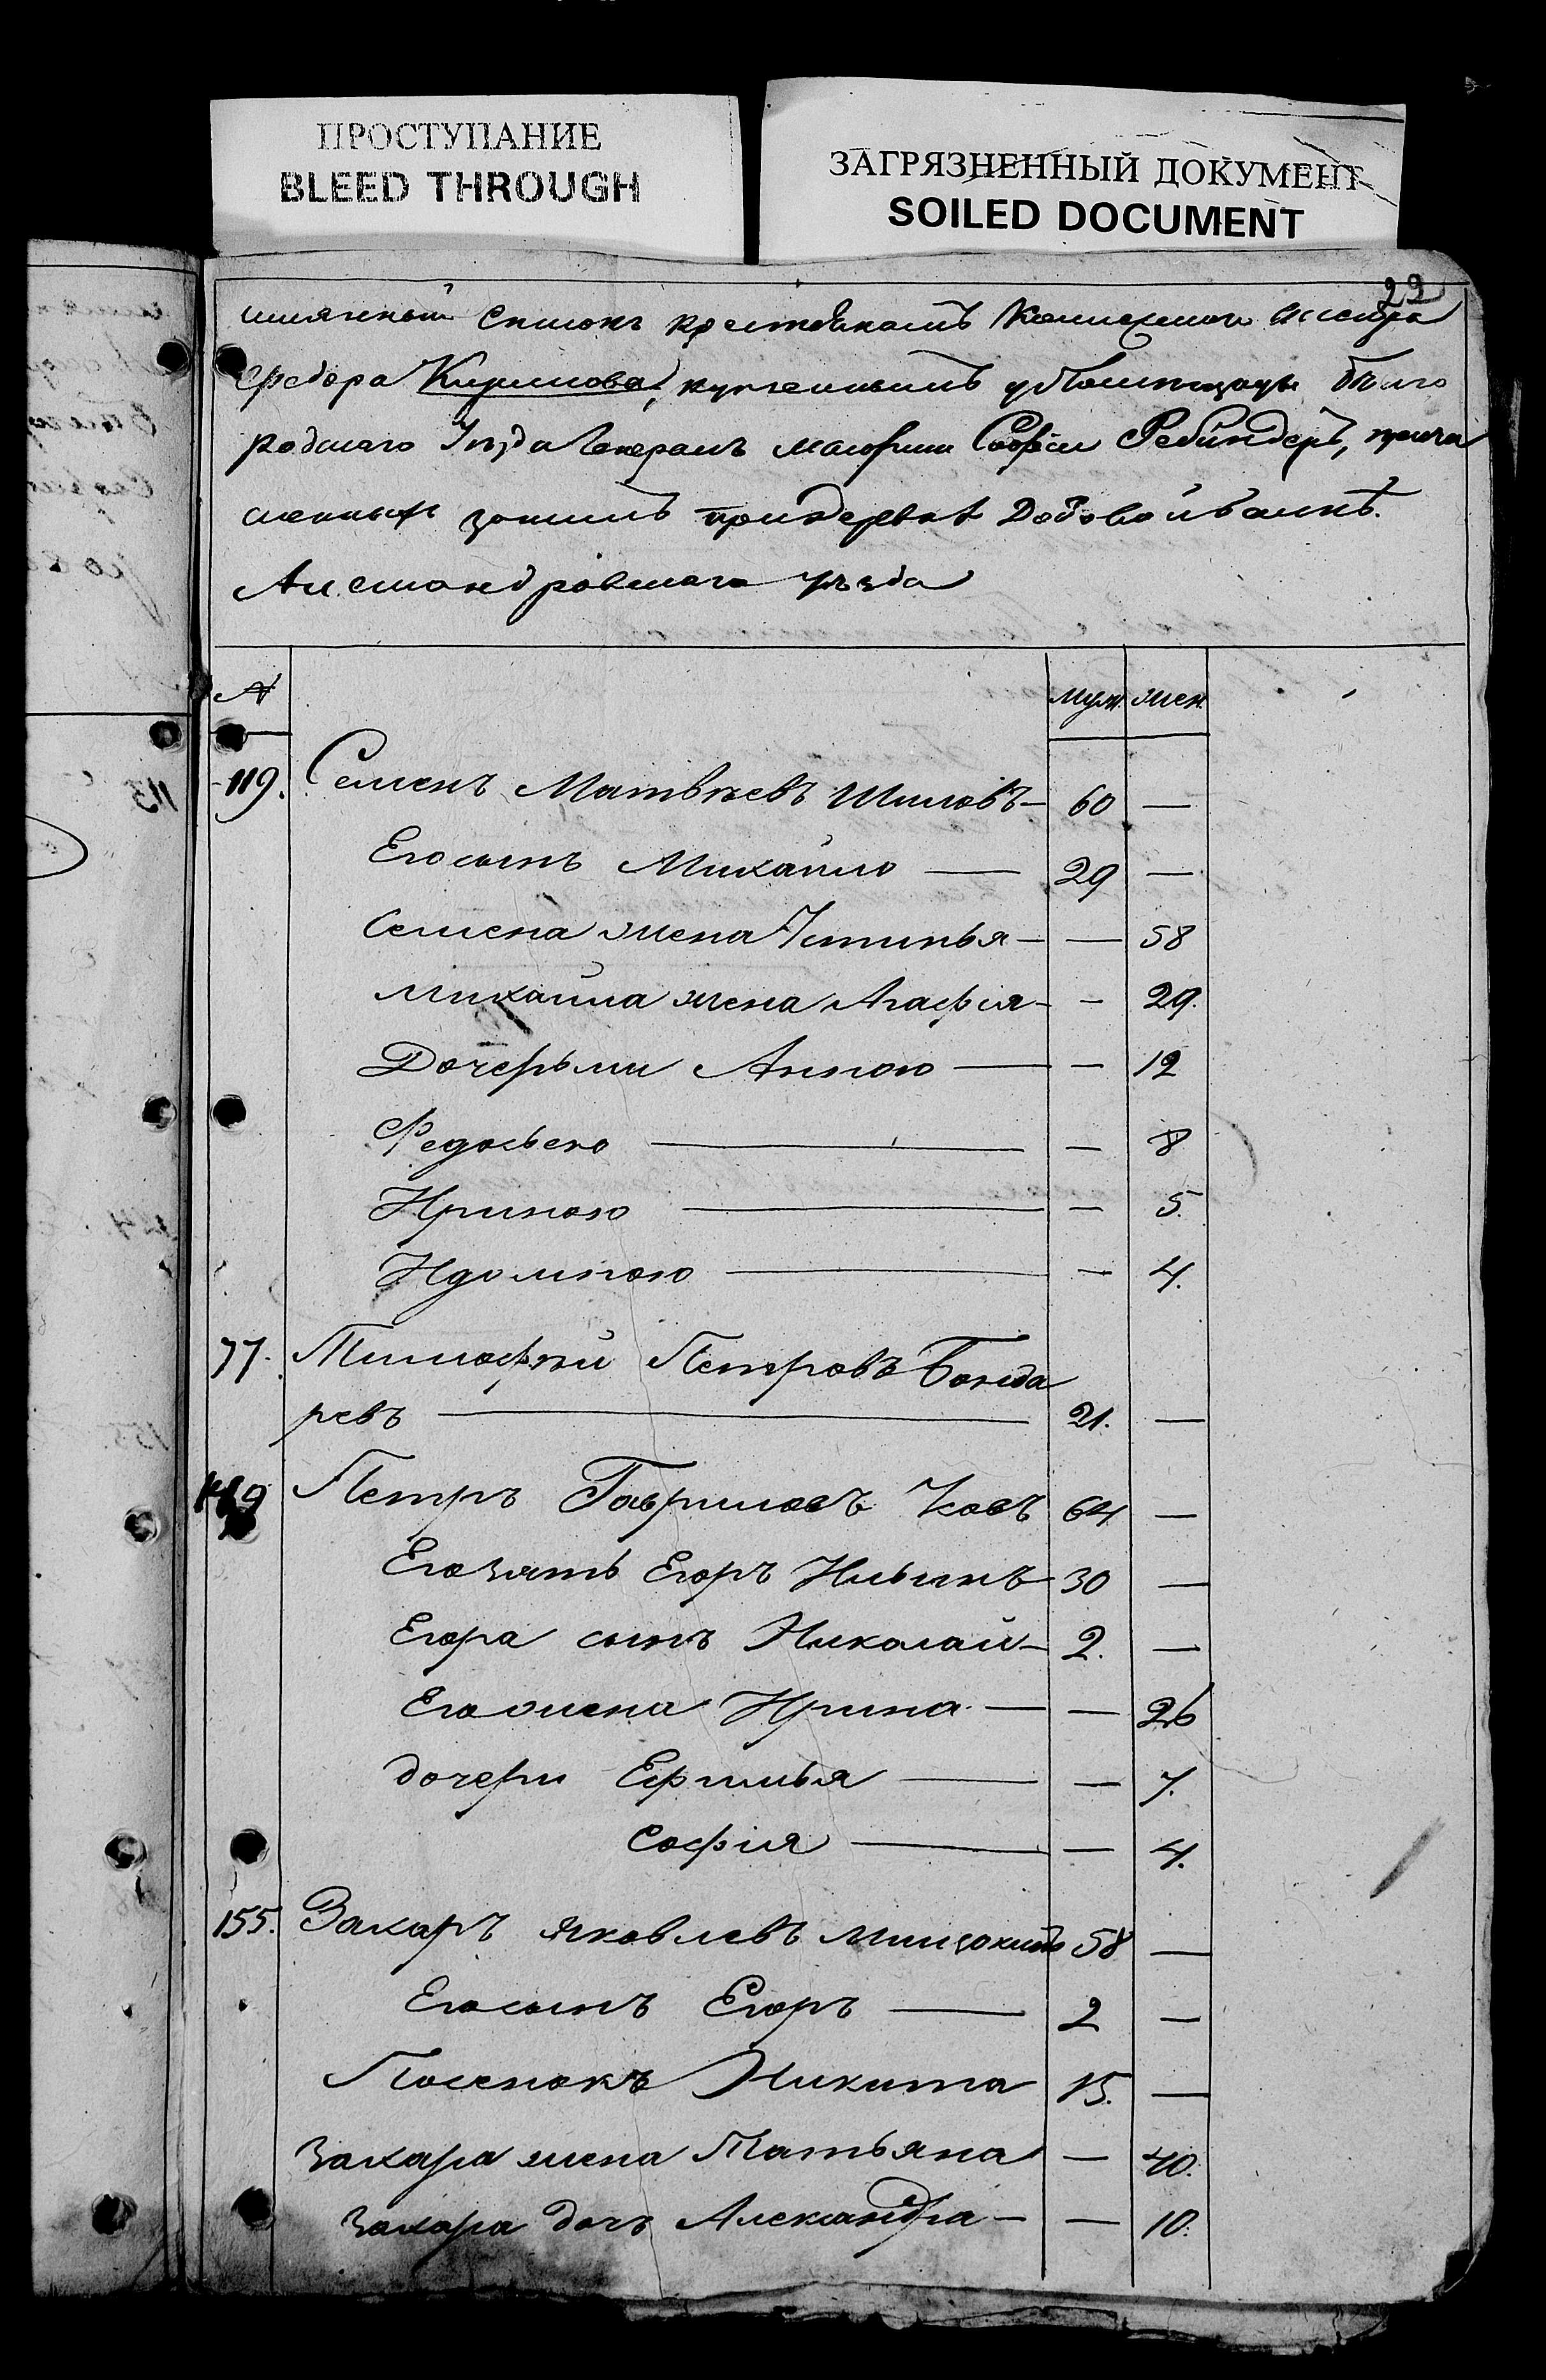 ПРОСТУПАНИЕ
BLEED THROUGH
ЗАГРЯЗНЕННЫЙ ДОКУМЕНТ
SOILED DOCUMENT
22
имянной Списокъ крестьянамъ Колежскаго Асесора
Федора Кирилова, купленнымъ убѣлго
родскаго Уѣзда Генералъ маіорши Софіи Ребиндеръ, причи
сленныхъ при деревнѣ
Александровскаго уѣзда
№ муж. жен.
119. Семенъ Матвѣевъ Шиловъ — 60 —
Его сынъ Михайло — 29 —
Семена жена Устинья — — 58
Михайла жена Агафія — — 29.
Дочерьми Анною — — 12
Федосьею — — 8
Ириною — — 5.
И домною — — 4.
77. Тимофѣй Петровъ Бонда
ревъ — 21. —
Петръ Гавриловъ 64 —
Его зять Егоръ Ильинъ 30 —
Егора сынъ Николай — 2. —
Его жена Ирина — — 26
дочери Ефимья — — 7.
Софія — — 4.
155. Захаръ Яковлевъ 58 —
Его сынъ Егоръ — 2 —
Никита 15. —
Захара жена Татьяна — 40.
Захара дочь Александра — — 10.
115